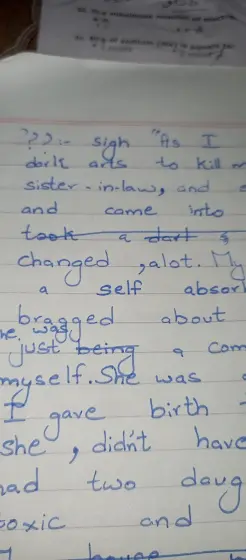 ???:- sigh "As I
dark arts to kill m
sister-in-law, and
and came into
took a dart
changed ,alot. My
a self absor
bragged about
he was
just being a com
myself. She was
I gave birth
she, didn't have
had two daug
toxic and
house